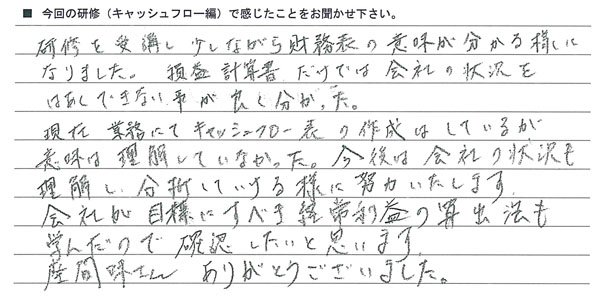 ■ 今回の研修（キャッシュフロー編）で感じたことをお聞かせ下さい。
研修を受講し少しながら財務表の意味が分かる様に
なりました。 損益計算書だけでは会社の状況を
はあくできない事が良く分かった。
現在 業務にてキャッシュフロー表の作成はしているが
意味は理解していなかった。今後は会社の状況も
理解し、分析していける様に努力いたします。
会社が目標にすべき経常利益の算出法も
学んだので確認したいと思います。
座間味さん ありがとうございました。